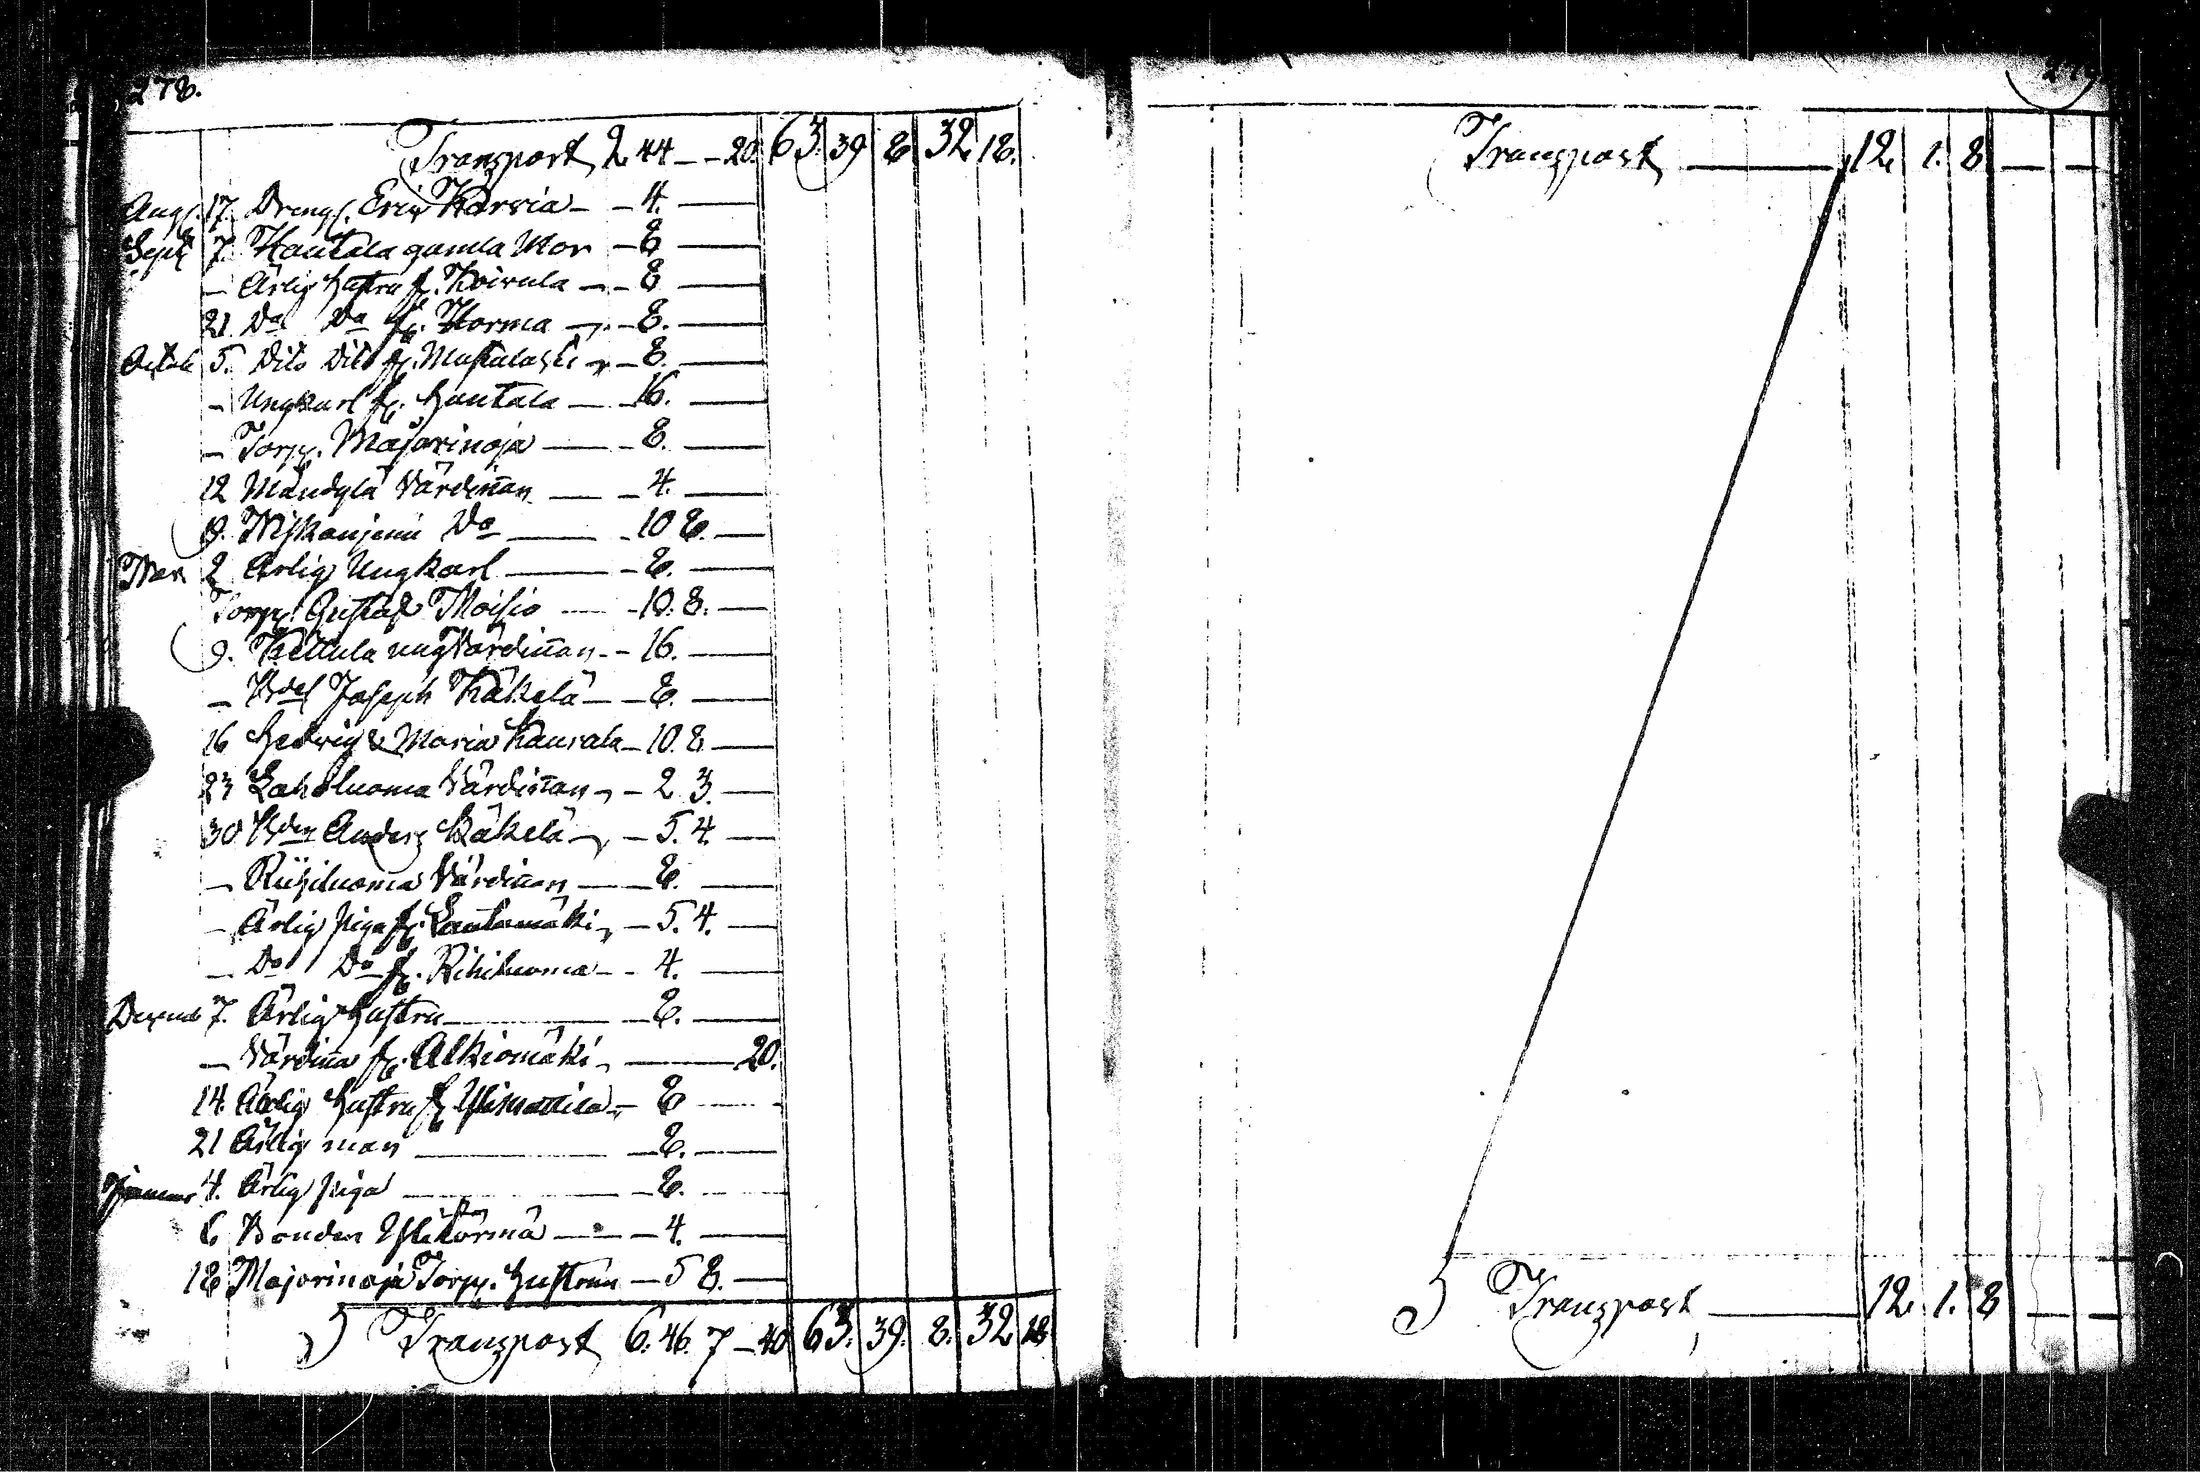 278.
Transport 2 44 – – 20. 63. 39 8 32 18.
Aug. 17. Dreng. Eric Karvia – – 4. —
Sept. 7. Hautala gamla Mor – 8 —
– Ärlig Hustru fr. Koivula – – 8 —
21. Do Do fr. Horma – – 8. —
Octob 5. Dito Dito fr. – 8. —
– Ungkarl fr. Hautala — – 16. —
– Torp. Majorinoja — – 8. —
12 Mändylä Värdinnan — – 4. —
19. Niskanjemi Do — – 10 8. —
2 Ärlig Ungkarl — – 8. —
Torp. Gustaf Moisio — – 10. 8. —
9. Kettula ung Värdinnan – – 16. —
– Joseph Käkelä – – 8. —
16 Hedvig & Maria Kaurala – 10. 8 —
23 Laholuoma Värdinnan – – 2 3. —
30 Anders Käkelä – – 5. 4. —
– Riihiluoma Värdinnan — – 8. —
– Ärlig Piga fr. Lautamäki – – 5. 4. —
– Do Do fr. Rihiluoma – – 4. —
Decemb 7. Ärlig Hustru — – 8. —
– Värdinna fr. Alkiomäki – — 20.
14. Ärlig Hustru fr. – 8 —
21 Ärlig man — – 8. —
4. Ärlig Piga — – 8. —
6 Bonden Ylikörmä — – 4. —
18 Majorinoja Torp. Hustrun – 5 8. —
Transport 6. 46. 7 – 40 63. 39. 8. 32 18
Transport — 12. 1. 8 — —
Transport — 12. 1. 8 — —